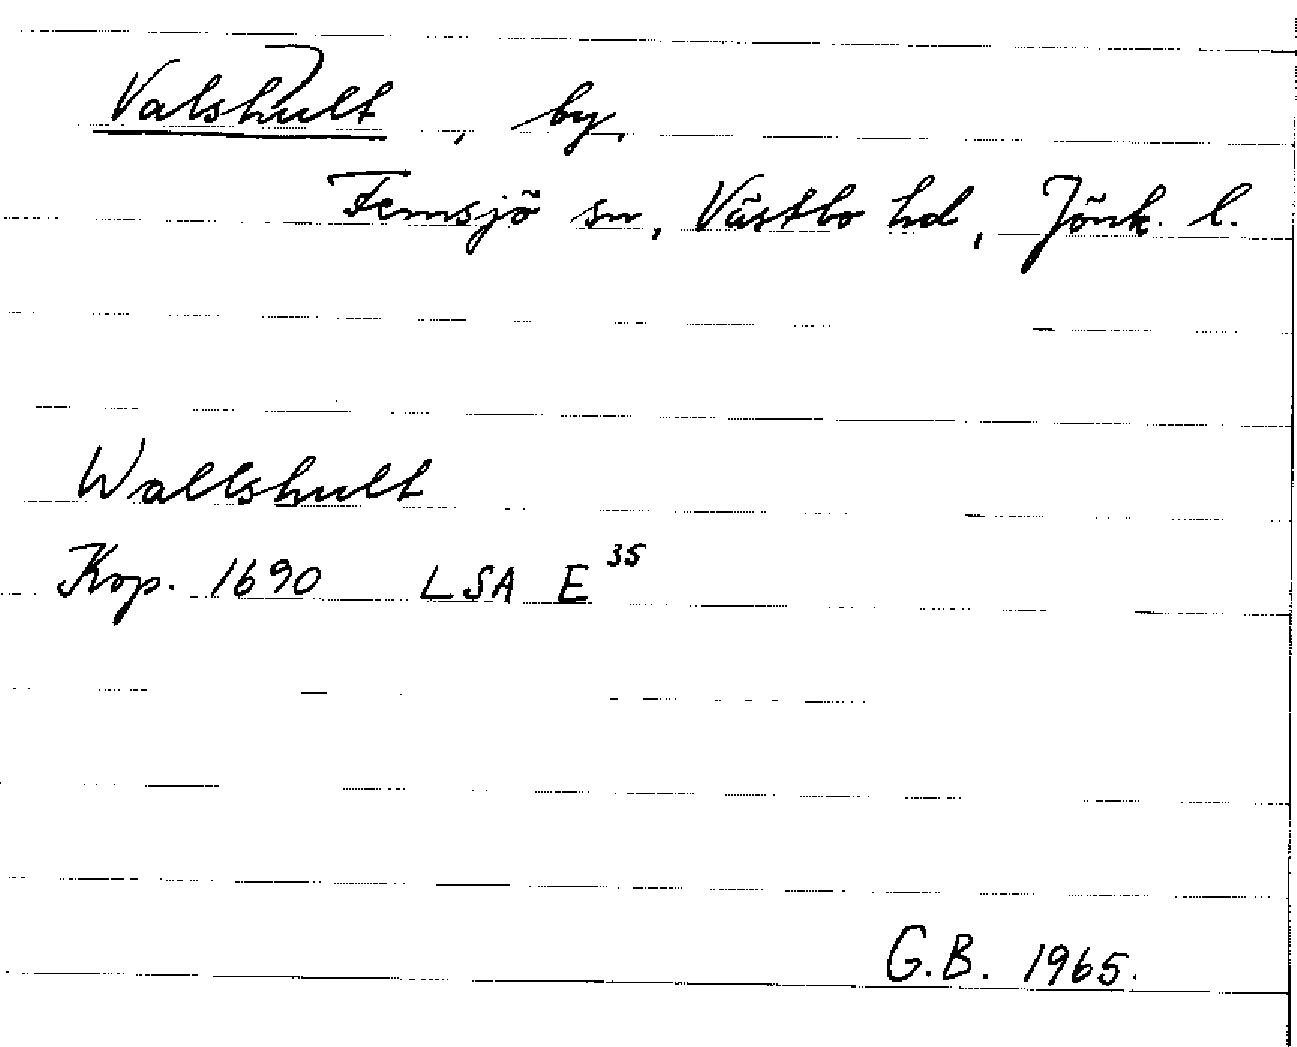 Valshult, by,
Femsjö sn, Västbo hd, Jönk. l.
Wallshult
Kop. 1690 LSA E 35
G.B. 1965.